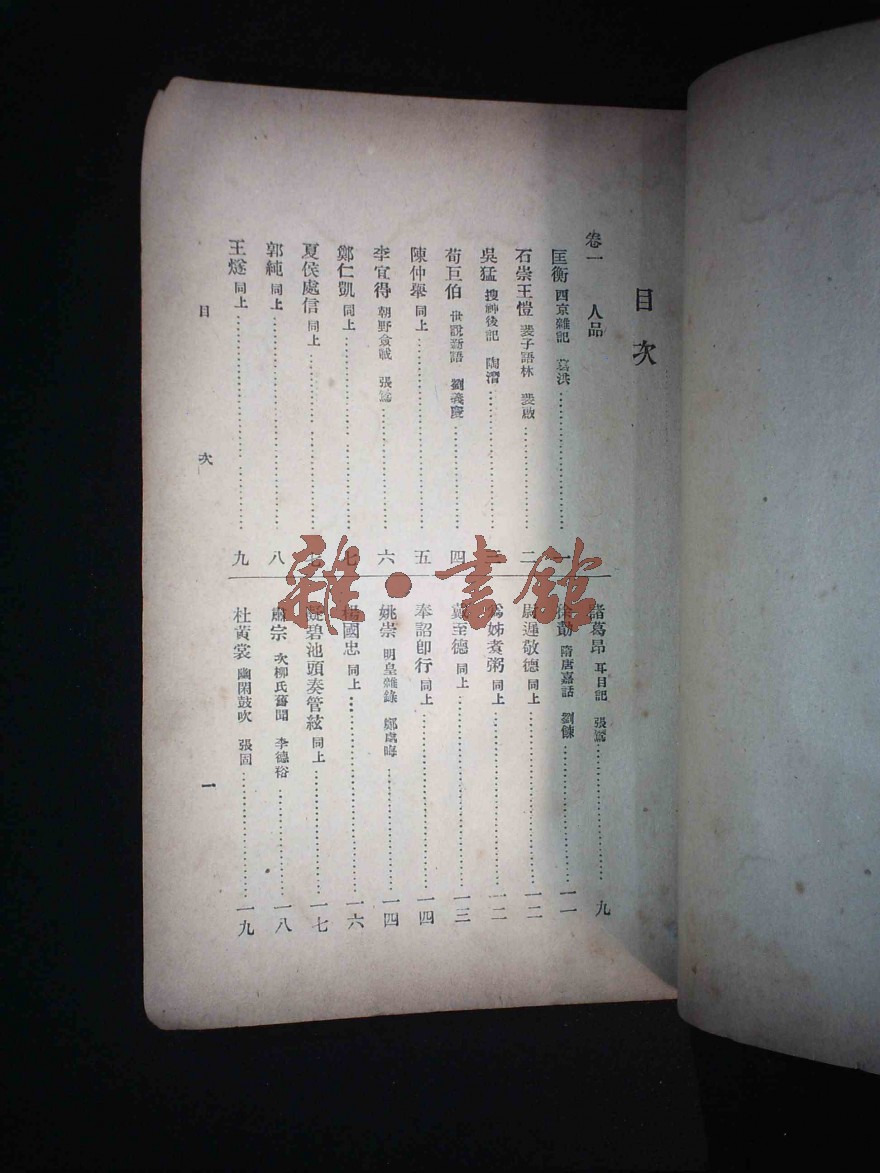 目次
卷一 人品
匡衡 西京雜記 葛洪……一
石崇王愷 裴子語林 裴啟……二
吳猛 搜神後記 陶潛……三
荀巨伯 世說新語 劉義慶……四
陳仲舉 同上……五
李宜得 朝野僉載 張鷟……六
鄭仁凱 同上……七
夏侯處信 同上……七
郭純 同上……八
王燧 同上……九
諸葛昂 耳目記 張鷟……九
徐勣 隋唐嘉話 劉餗……一一
尉遲敬德 同上……一二
姊煑粥 同上……一二
戴至德 同上……一三
奉詔卽行 同上……一四
姚崇 明皇雜錄 鄭處晦……一四
楊國忠 同上……一六
凝碧池頭奏管絃 同上……一七
肅宗 次柳氏舊聞 李德裕……一八
杜黃裳 幽閑鼓吹 張固……一九
目次 一
雜·書館